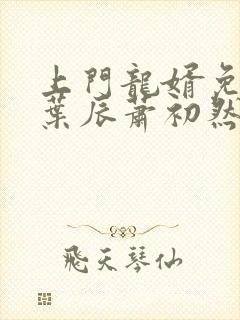 上門龍婿免
葉辰蕭初然
飛天琴仙